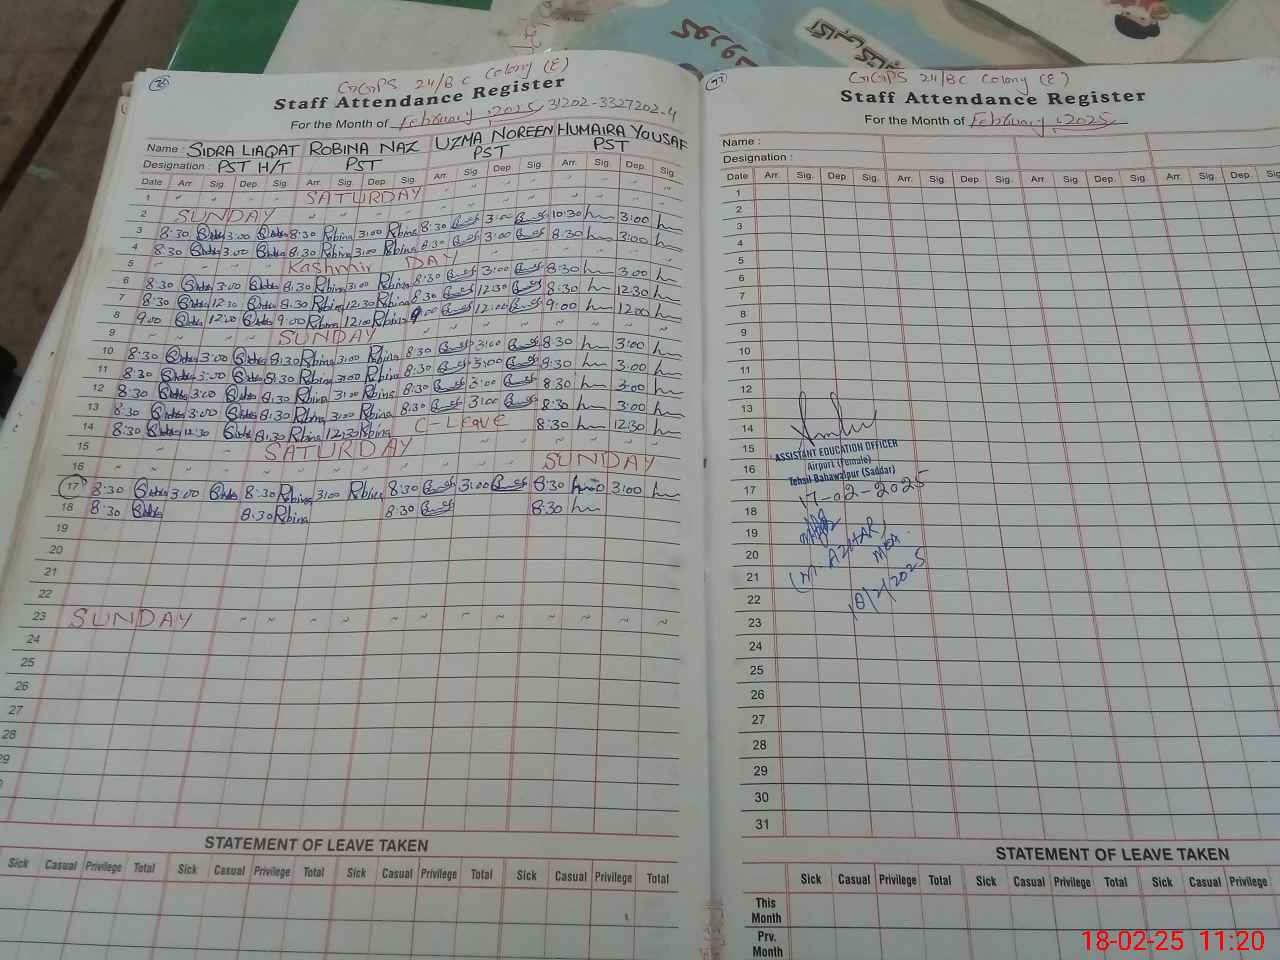 GGPS 24/BC Colony (E)
Staff Attendance Register
For the Month of February, 2025, 31202-3327202-4
Name : SIDRA LIAQAT ROBINA NAZ UZMA NOREEN HUMAIRA YOUSAF
Designation : PST H/T PST PST PST
Date Arr. Sig. Dep. Sig. Arr. Sig. Dep. Sig. Arr. Sig. Dep. Sig. Arr. Sig. Dep. Sig.
1 SATURDAY
2 SUNDAY
3 8:30 3:00 8:30 Robina 3:00 Robina 8:30 3:00 10:30 3:00
4 8:30 3:00 8:30 Robina 3:00 Robina 8:30 3:00 8:30 3:00
5 Kashmir DAY
6 8:30 3:00 8:30 Robina 3:00 Robina 8:30 3:00 8:30 3:00
7 8:30 12:30 8:30 Robina 12:30 Robina 8:30 12:30 8:30 12:30
8 9:00 12:00 9:00 Robina 12:00 Robina 9:00 12:00 9:00 12:00
9 SUNDAY
10 8:30 3:00 8:30 Robina 3:00 Robina 8:30 3:00 8:30 3:00
11 8:30 3:00 8:30 Robina 3:00 Robina 8:30 3:00 8:30 3:00
12 8:30 3:00 8:30 Robina 3:00 Robina 8:30 3:00 8:30 3:00
13 8:30 3:00 8:30 Robina 3:00 Robina 8:30 3:00 8:30 3:00
14 8:30 12:30 8:30 Robina 12:30 Robina C-Leave 8:30 12:30
15 SATURDAY
16 SUNDAY
17 8:30 3:00 8:30 Robina 3:00 Robina 8:30 3:00 8:30 3:00
18 8:30 8:30 Robina 8:30 8:30
19
20
21
22
23 SUNDAY
24
25
26
27
28
29
STATEMENT OF LEAVE TAKEN
Sick Casual Privilege Total Sick Casual Privilege Total Sick Casual Privilege Total Sick Casual Privilege Total
GGPS 24/BC Colony (E)
Staff Attendance Register
For the Month of February, 2025
Name :
Designation :
Date Arr. Sig. Dep. Sig. Arr. Sig. Dep. Sig. Arr. Sig. Dep. Sig. Arr. Sig. Dep.
1
2
3
4
5
6
7
8
9
10
11
12
13
14
15 ASSISTANT EDUCATION OFFICER
16 Airport (Female)
Tehsil Bahawalpur (Saddar)
17 17-02-2025
18
19
20 (M. AZHAR)
MEA
21
22 18/2/2025
23
24
25
26
27
28
29
30
31
STATEMENT OF LEAVE TAKEN
Sick Casual Privilege Total Sick Casual Privilege Total Sick Casual Privilege
This Month
Prv. Month
18-02-25 11:20